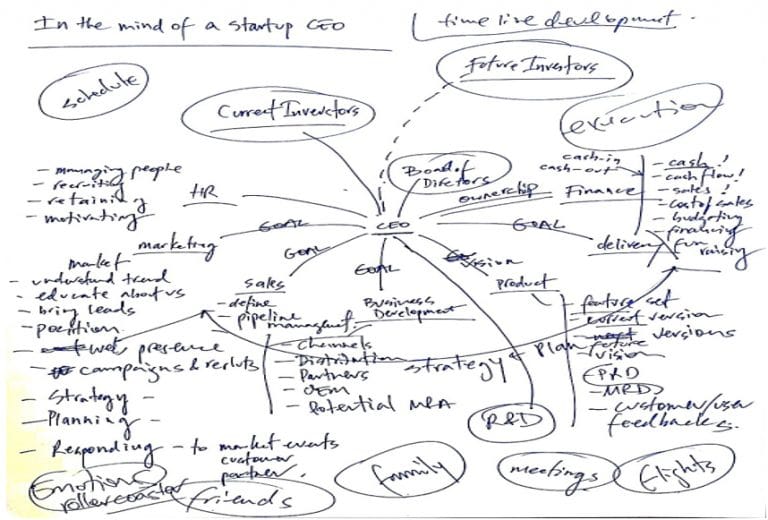 In the mind of a startup CEO
time line development.
schedule
Current Invectors
Future Investors
execution
Board of
Directors
cash-in
cash-out
ownership
Finance
- cash!
- cash flow!
- sales!
- cost of sales
- budgeting
- financing
fun raising
HR
- managing people
- recruiting
- retaining
- motivating
CEO
GOAL
GOAL
GOAL
GOAL
vision
delivery
marketing
market
- understand trend
- educate about us
- bring leads
- position
- web presence
- campaigns &
- Strategy -
- Planning -
- Responding - to market events
customer
partner.
sales
- define
- pipeline
management.
Business
Development
- channels
- Distribution
- Partners
- OEM
- Potential M&A
strategy & plan
product
- feature set
- current version
- future versions
- vision
- PRD
- MRD
- customer/user
feedbacks.
R&D
Emotions
rollercoaster
friends
family
meetings
flights